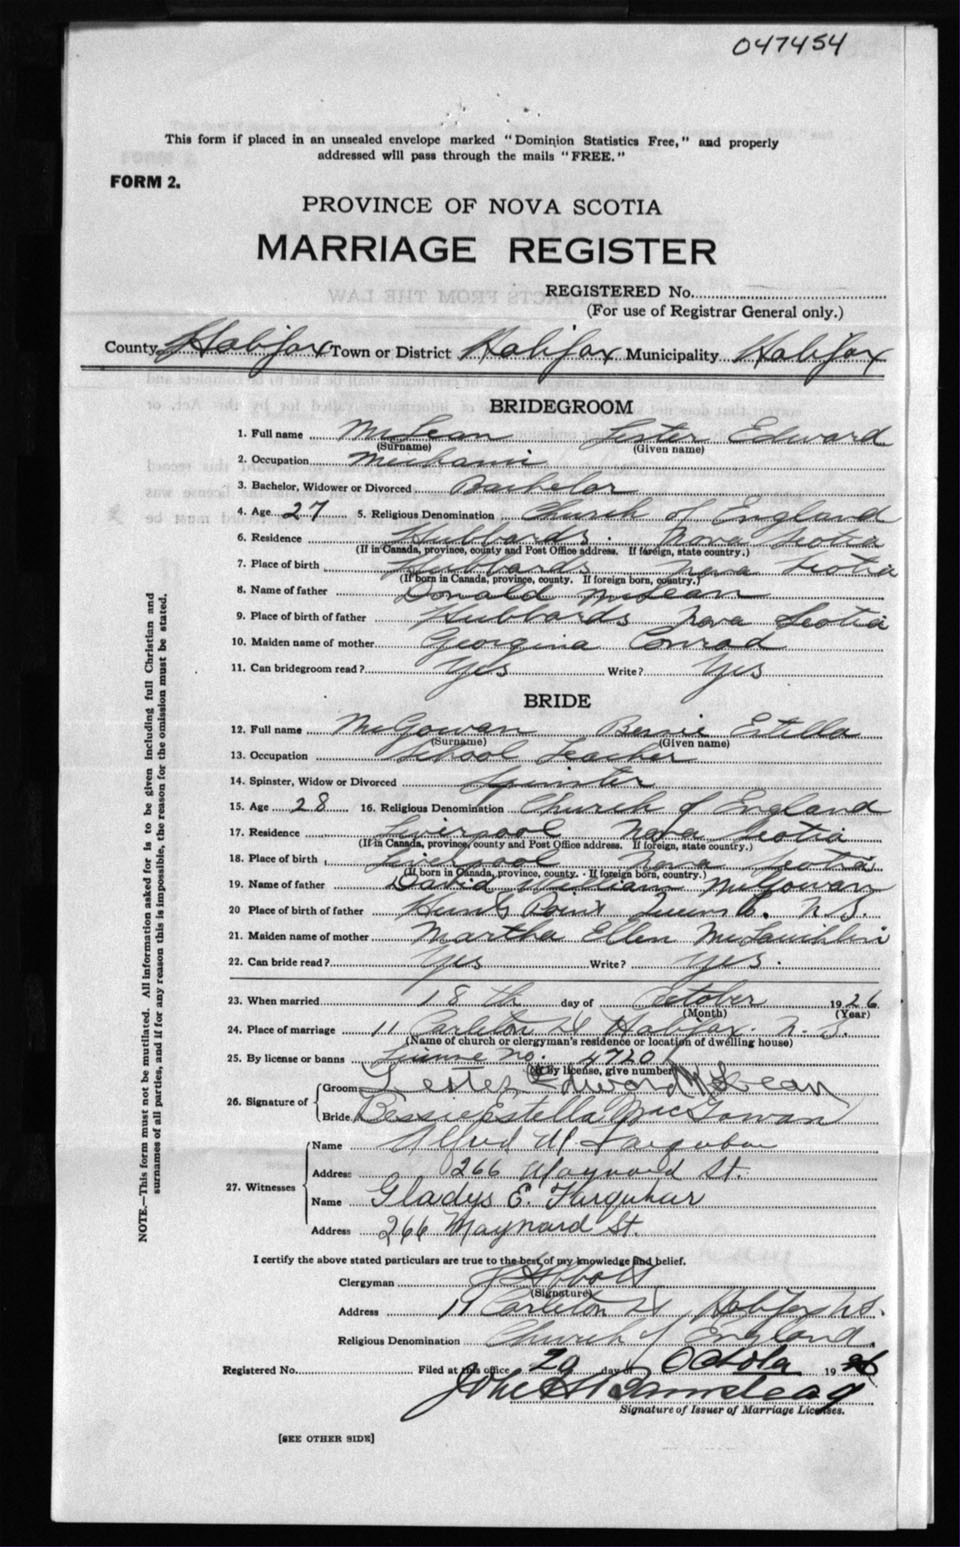 047454
This form if placed in an unsealed envelope marked "Dominion Statistics Free," and properly
addressed will pass through the mails "FREE."
FORM 2.
PROVINCE OF NOVA SCOTIA
MARRIAGE REGISTER
REGISTERED No.
(For use of Registrar General only.)
County Halifax Town or District Halifax Municipality Halifax
BRIDEGROOM
1. Full name McLean Lester Edward
(Surname) (Given name)
2. Occupation Mechanic
3. Bachelor, Widower or Divorced Bachelor
4. Age 27 5. Religious Denomination Church of England
6. Residence Hubbards. Nova Scotia
(If in Canada, province, county and Post Office address. If foreign, state country.)
7. Place of birth Hubbards Nova Scotia
(If born in Canada, province, county. If foreign born, country.)
8. Name of father Donald McLean
9. Place of birth of father Hubbards Nova Scotia
10. Maiden name of mother Georgina Conrad
11. Can bridegroom read? Yes Write? Yes
BRIDE
12. Full name McGowan Bessie Estella
(Surname) (Given name)
13. Occupation School Teacher
14. Spinster, Widow or Divorced Spinster
15. Age 28 16. Religious Denomination Church of England
17. Residence Liverpool Nova Scotia
(If in Canada, province, county and Post Office address. If foreign, state country.)
18. Place of birth Liverpool Nova Scotia
(If born in Canada, province, county. - If foreign born, country.)
19. Name of father David William McGowan
20 Place of birth of father Hunts Point Queens Co. N.S.
21. Maiden name of mother Martha Ellen
22. Can bride read? Yes Write? Yes.
23. When married 18th day of October 1926
(Month) (Year)
24. Place of marriage 11 Carleton St Halifax. N.S.
(Name of church or clergyman's residence or location of dwelling house)
25. By license or banns License No. 47201
(If by license, give number)
26. Signature of
Groom Lester Edward McLean
Bride Bessie Estella MacGowan
27. Witnesses
Name Alfred W. Farquhar
Address 266 Maynard St.
Name Gladys E. Farquhar
Address 266 Maynard St.
I certify the above stated particulars are true to the best of my knowledge and belief.
Clergyman Abbott
(Signature)
Address 11 Carleton St, Halifax N.S.
Religious Denomination Church of England.
Registered No. Filed at this office 29 day of October 1926
John
Signature of Issuer of Marriage Licenses.
[SEE OTHER SIDE]
NOTE.—This form must not be mutilated. All information asked for is to be given including full Christian and
surnames of all parties, and if for any reason this is impossible, the reason for the omission must be stated.